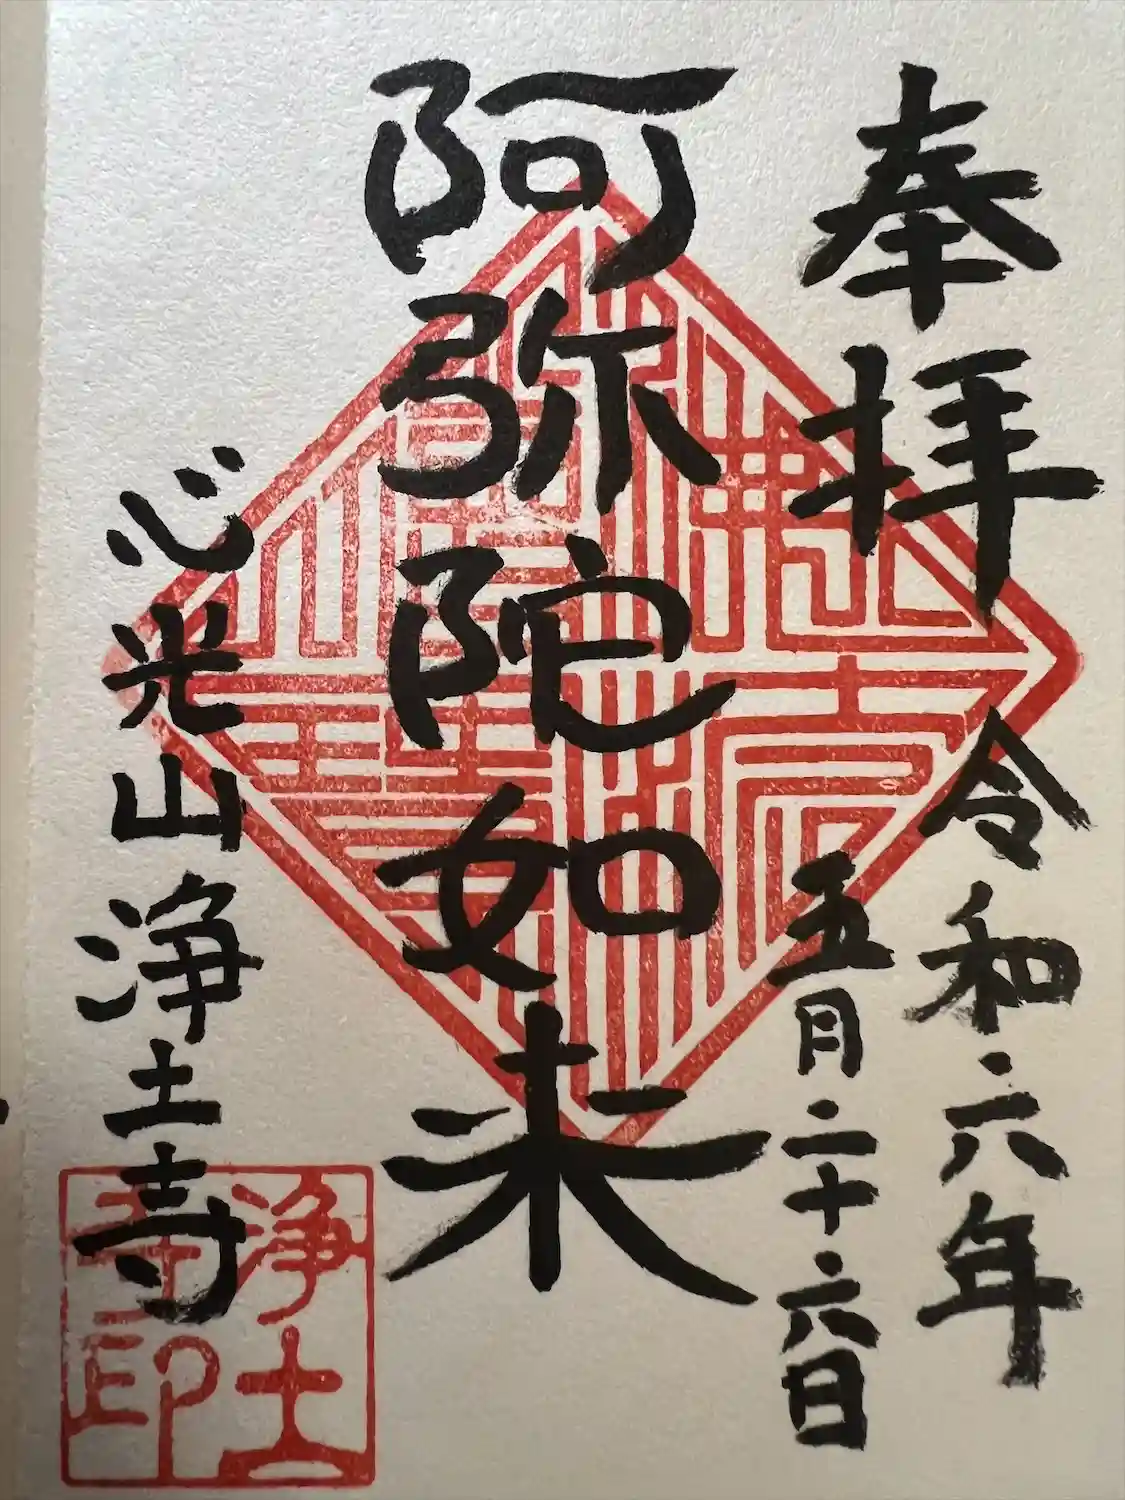 奉拝
令和六年
五月二十六日
阿弥陀如来
心光山浄土寺
浄土
寺印